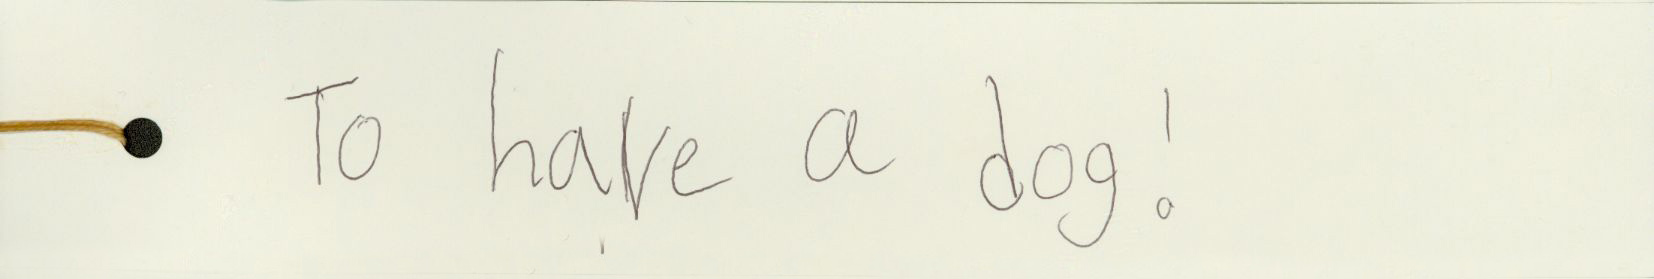 To have a dog!